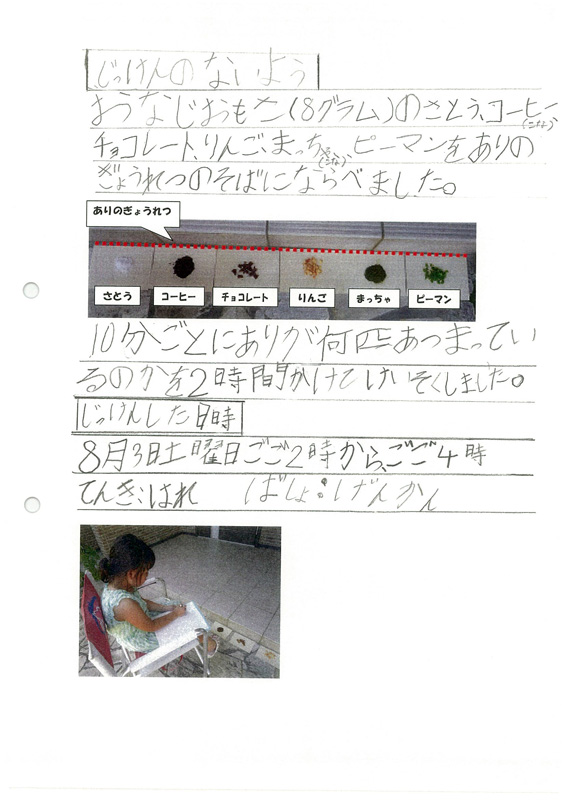 じっけんのないよう
おうなじおもさ(8グラム)のさとう、コーヒー(こな)
チョコレート、りんご、まっちゃ(こな)、ピーマンをありの
ぎょうれつのそばにならべました。
ありのぎょうれつ
さとう コーヒー チョコレート りんご まっちゃ ピーマン
10分ごとにありが何匹あつまってい
るのかを2時間かけてけいそくしました。
じっけんした日時
8月3日土曜日ごご2時から、ごご4時
てんき:はれ ばしょ:げんかん